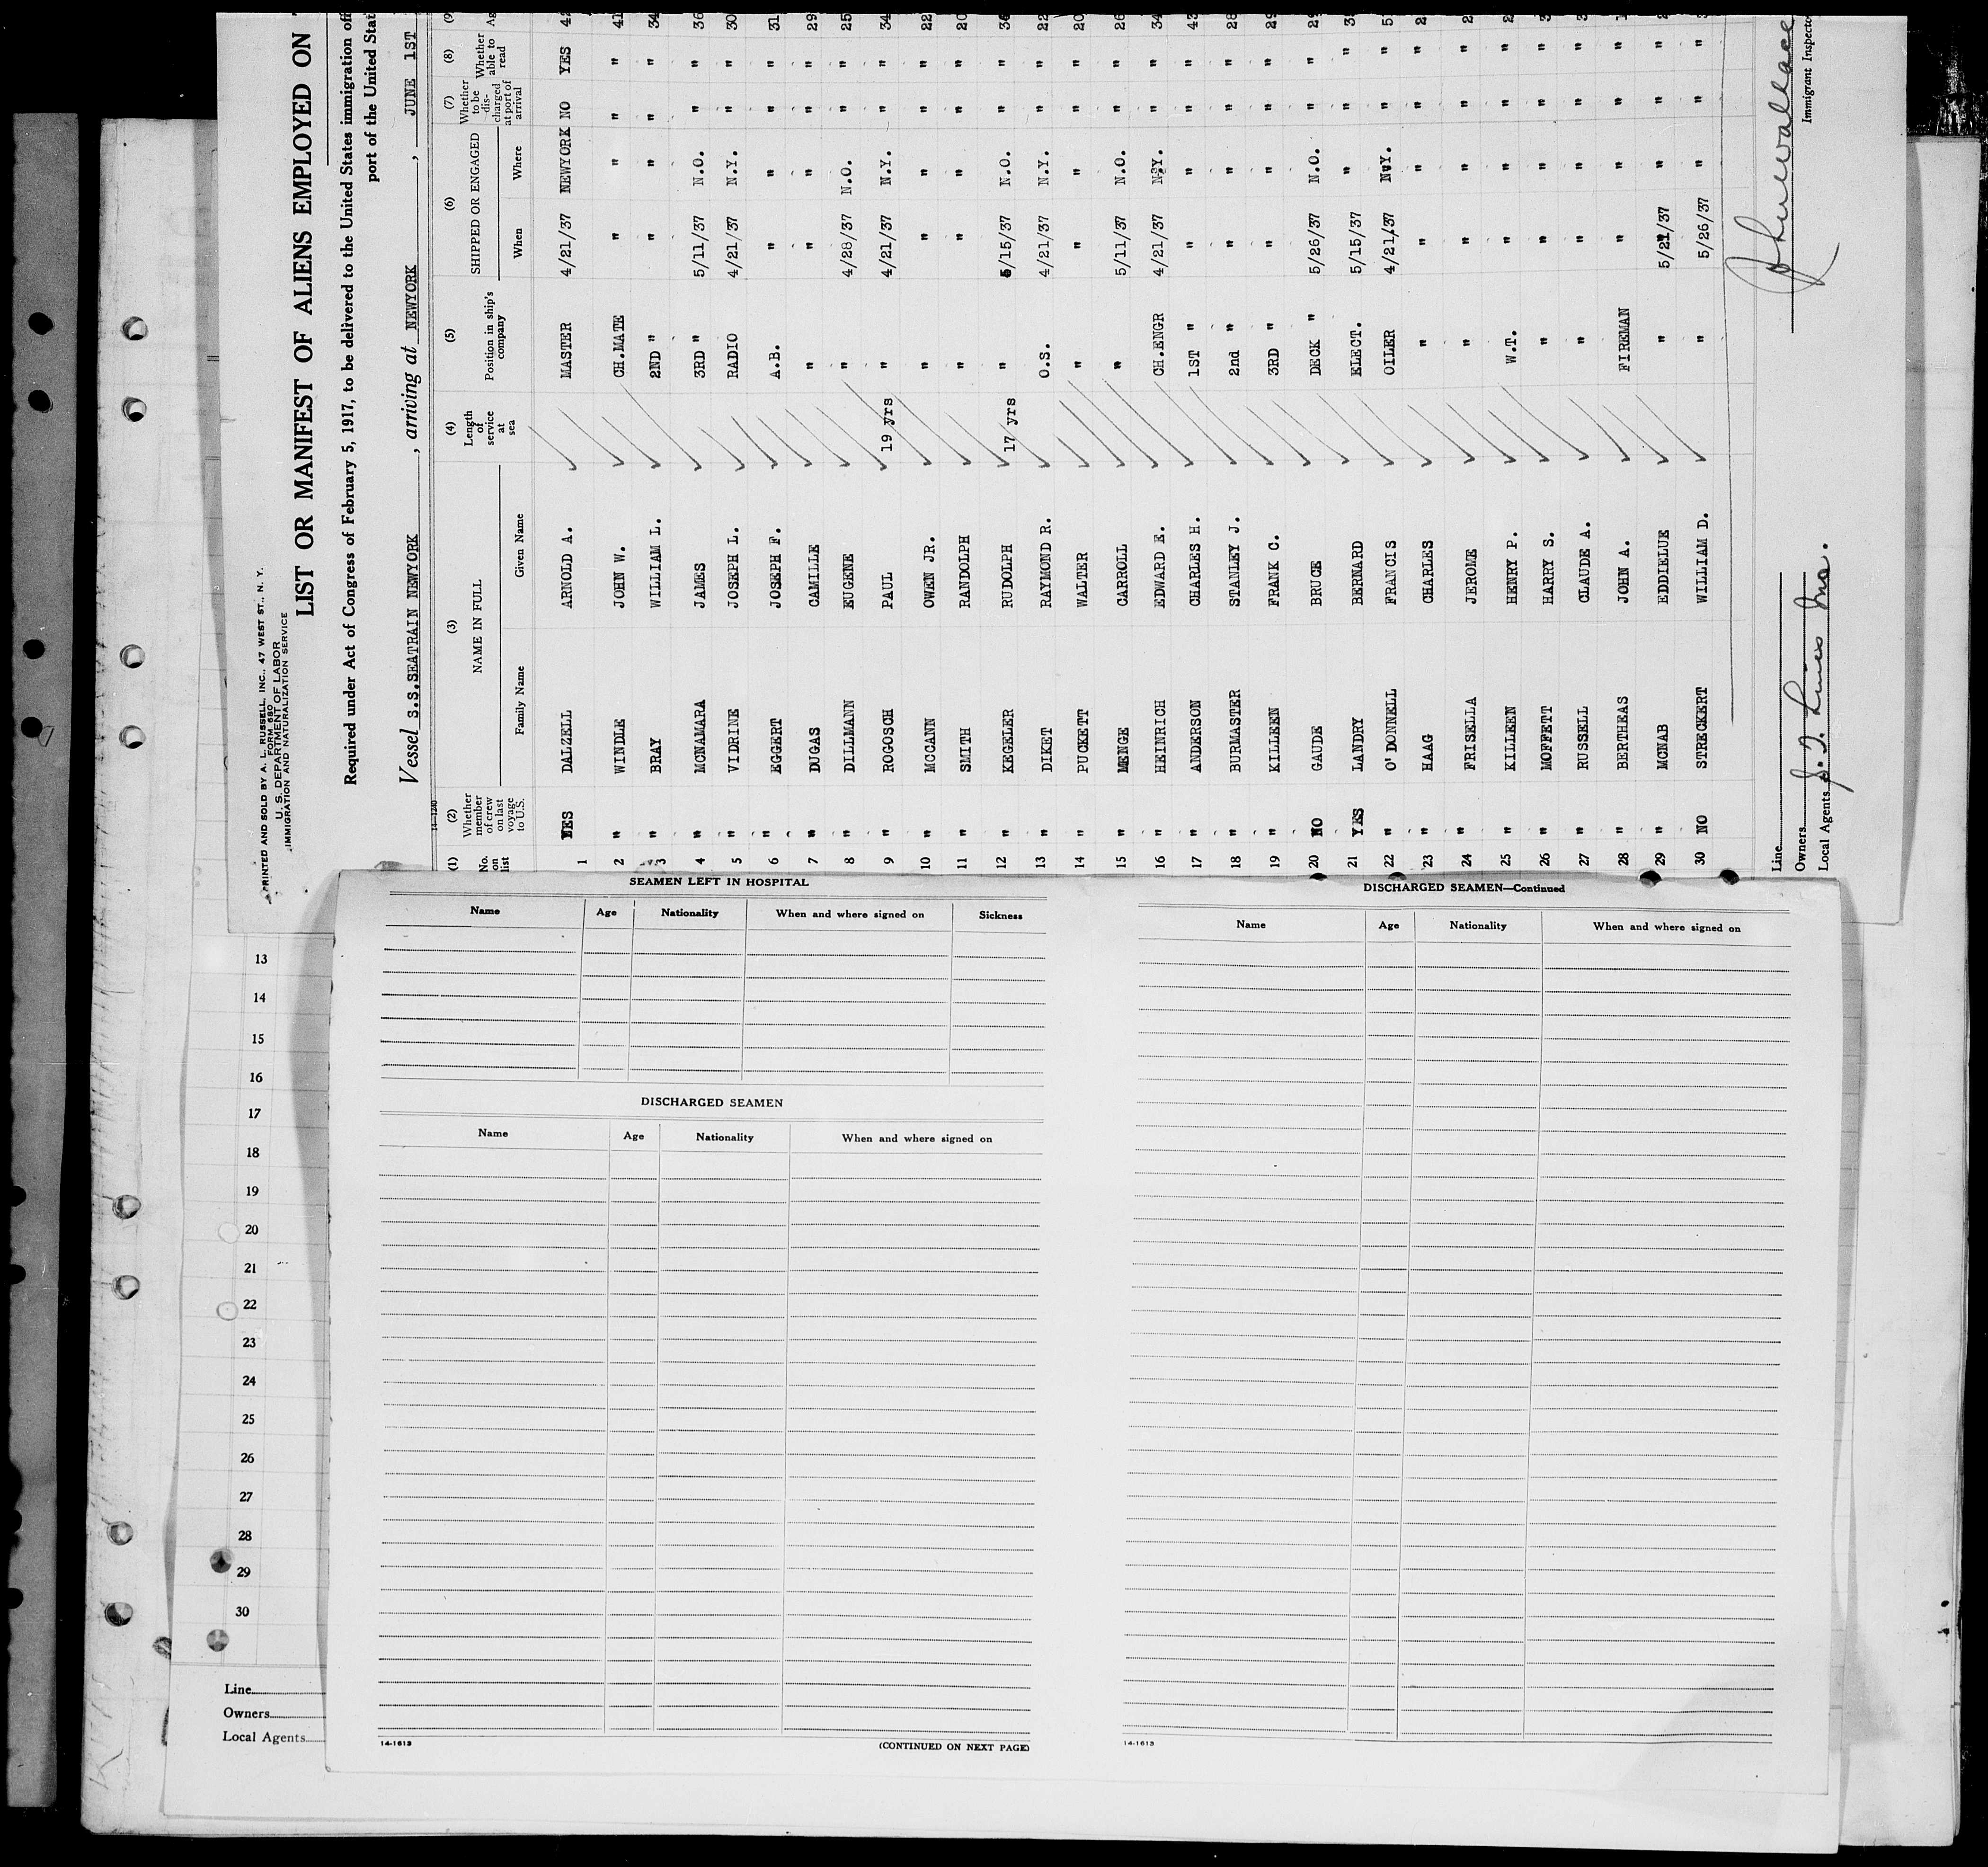 PRINTED AND SOLD BY A. L. RUSSELL, INC., 47 WEST ST., N. Y.
FORM 680
U. S. DEPARTMENT OF LABOR
IMMIGRATION AND NATURALIZATION SERVICE
LIST OR MANIFEST OF ALIENS EMPLOYED ON
Required under Act of Congress of February 5, 1917, to be delivered to the United States immigration
port of the United
Vessel S.S.SEATRAIN NEWYORK , arriving at NEWYORK , JUNE 1ST
14-1240
(1) (2) (3) (4) (5) (6) (7) (8)
No. on list Whether member of crew on last voyage to U.S. NAME IN FULL Length of service at sea Position in ship's company SHIPPED OR ENGAGED Whether to be discharged at port of arrival Whether able to read
Family Name Given Name When Where
1 YES DALZELL ARNOLD A. MASTER 4/21/37 NEWYORK NO YES
2 " WINDLE JOHN W. CH.MATE " " " " 41
3 " BRAY WILLIAM L. 2ND " " " " " 34
4 " MCNAMARA JAMES 3RD " 5/11/37 N.O. " " 36
5 " VIDRINE JOSEPH L. RADIO 4/21/37 N.Y. " " 30
6 " EGGERT JOSEPH F. A.B. " " " " 31
7 " DUGAS CAMILLE " " " " " 29
8 " DILLMANN EUGENE " 4/28/37 N.O. " " 25
9 " ROGOSCH PAUL 19 yrs " 4/21/37 N.Y. " " 34
10 " MCCANN OWEN JR. " " " " " 22
11 " SMITH RANDOLPH " " " " " 20
12 " KEGELER RUDOLPH 17 yrs " 5/15/37 N.O. " " 36
13 " DIKET RAYMOND R. O.S. 4/21/37 N.Y. " " 22
14 " PUCKETT WALTER " " " " " 20
15 " MENGE CARROLL " 5/11/37 N.O. " " 26
16 " HEINRICH EDWARD E. CH.ENGR 4/21/37 N.Y. " " 34
17 " ANDERSON CHARLES H. 1ST " " " " "
18 " BURMASTER STANLEY J. 2nd " " " " " 28
19 " KILLEEN FRANK C. 3RD " " " " "
20 NO GAUDE BRUCE DECK " 5/26/37 N.O. " "
21 YES LANDRY BERNARD ELECT. 5/15/37 " " "
22 " O'DONNELL FRANCIS OILER 4/21/37 N.Y. " "
23 " HAAG CHARLES " " " " "
24 " FRISELLA JEROME " " " " "
25 " KILLEEN HENRY P. W.T. " " " "
26 " MOFFETT HARRY S. " " " " "
27 " RUSSELL CLAUDE A. " " " " "
28 " BERTHEAS JOHN A. FIREMAN " " " "
29 " MCNAB EDDIELUE " 5/21/37 " " "
30 NO STRECKERT WILLIAM D. " 5/26/37 " " "
Line
Owners
Local Agents
John Wallace
Immigrant Inspector
SEAMEN LEFT IN HOSPITAL
Name Age Nationality When and where signed on Sickness
DISCHARGED SEAMEN
Name Age Nationality When and where signed on
14-1613
(CONTINUED ON NEXT PAGE)
DISCHARGED SEAMEN—Continued
Name Age Nationality When and where signed on
14-1613
13
14
15
16
17
18
19
20
21
22
23
24
25
26
27
28
29
30
Line
Owners
Local Agents